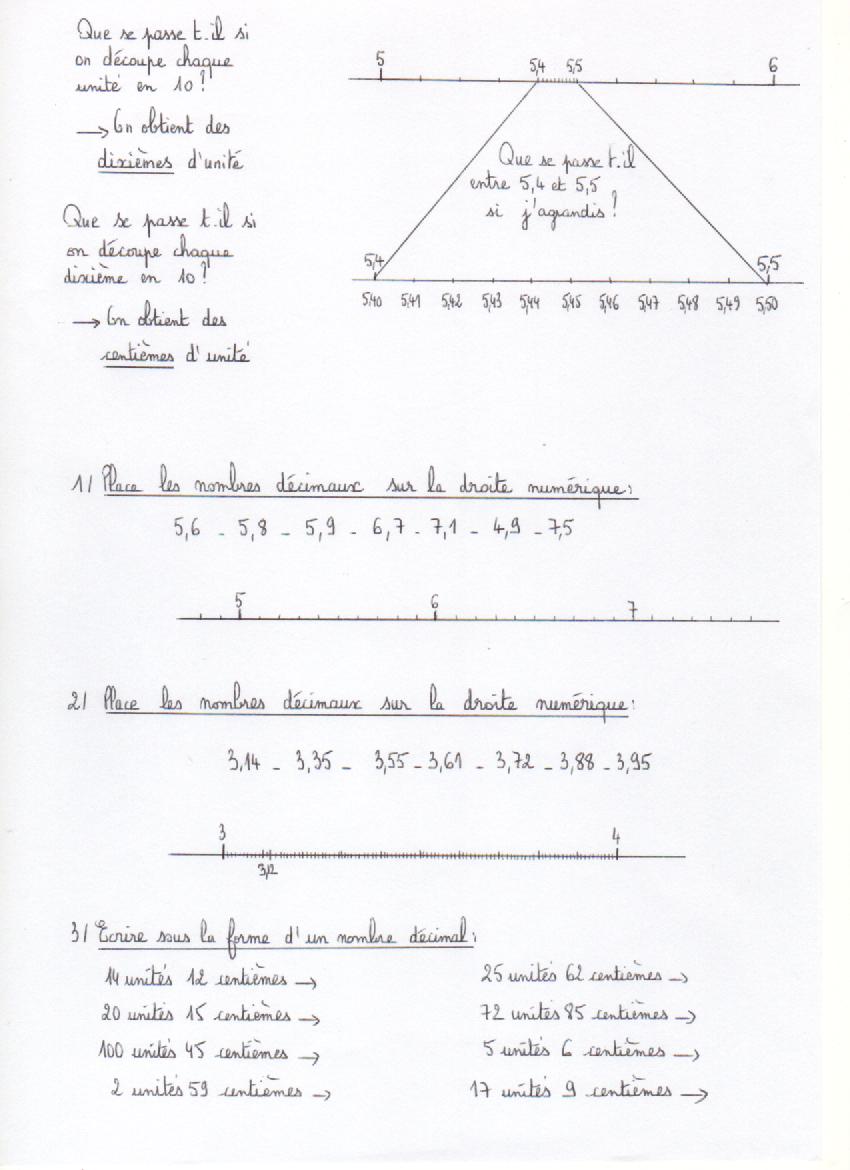 Que se passe t-il si
on découpe chaque
unité en 10 ?
→ On obtient des
dixièmes d'unité
Que se passe t-il si
on découpe chaque
dixième en 10 ?
→ On obtient des
centièmes d'unité
5 5,4 5,5 6
Que se passe t-il
entre 5,4 et 5,5
si j'agrandis ?
5,4 5,5
5,40 5,41 5,42 5,43 5,44 5,45 5,46 5,47 5,48 5,49 5,50
1/ Place les nombres décimaux sur la droite numérique :
5,6 - 5,8 - 5,9 - 6,7 - 7,1 - 4,9 - 7,5
5 6 7
2/ Place les nombres décimaux sur la droite numérique :
3,14 - 3,35 - 3,55 - 3,61 - 3,72 - 3,88 - 3,95
3 4
3,12
3/ Ecrire sous la forme d'un nombre décimal :
14 unités 12 centièmes → 25 unités 62 centièmes →
20 unités 15 centièmes → 72 unités 85 centièmes →
100 unités 45 centièmes → 5 unités 6 centièmes →
2 unités 59 centièmes → 17 unités 9 centièmes →